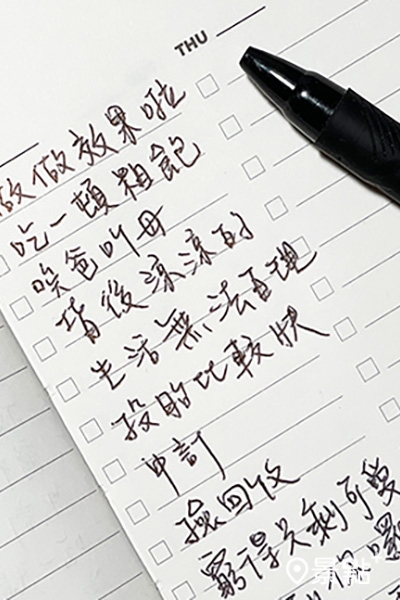 THU
做做效果啦
吃一頓粗飽
唉爸叫母
背後涼涼的
生活無法再現
投胎比較快
中計
撿回收
窮得只剩可愛
景點+